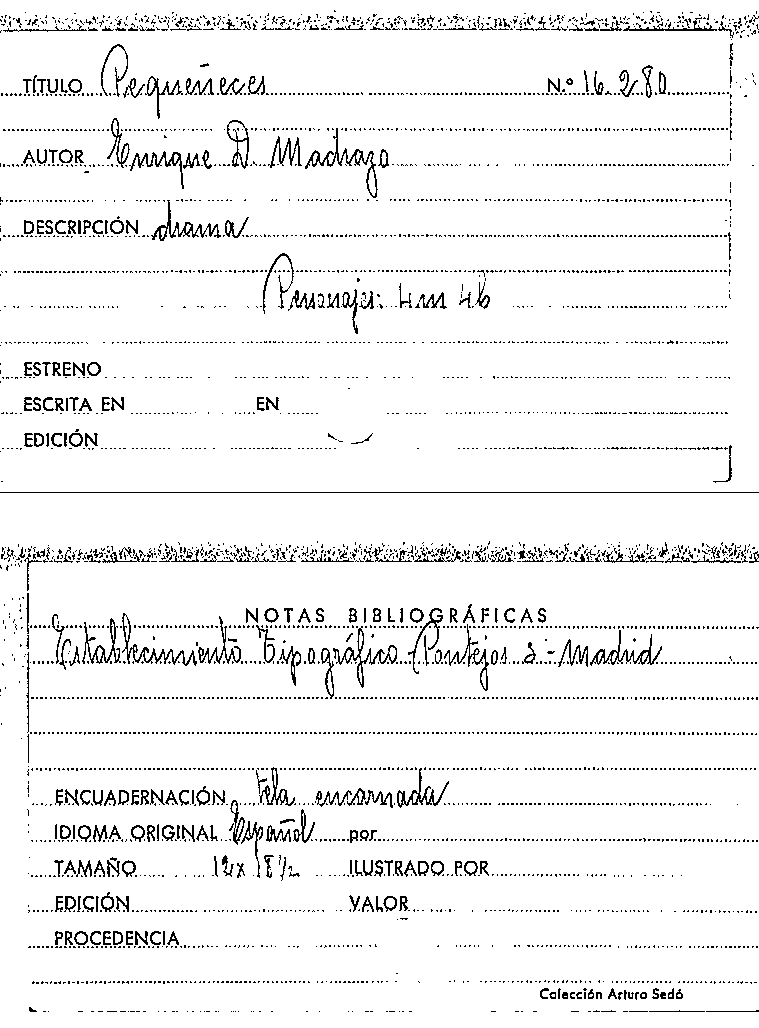 TÍTULO Pequeñeces N.º 16.280
AUTOR Enrique D. Madrazo
DESCRIPCIÓN drama
Personajes: 4m 4h
ESTRENO
ESCRITA EN EN
EDICIÓN
NOTAS BIBLIOGRÁFICAS
Establecimiento Tipográfico - Pontejos 3 - Madrid
ENCUADERNACIÓN tela encarnada
IDIOMA ORIGINAL Español por
TAMAÑO 12 x 18 1/2 ILUSTRADO POR
EDICIÓN VALOR
PROCEDENCIA
Colección Arturo Sedó